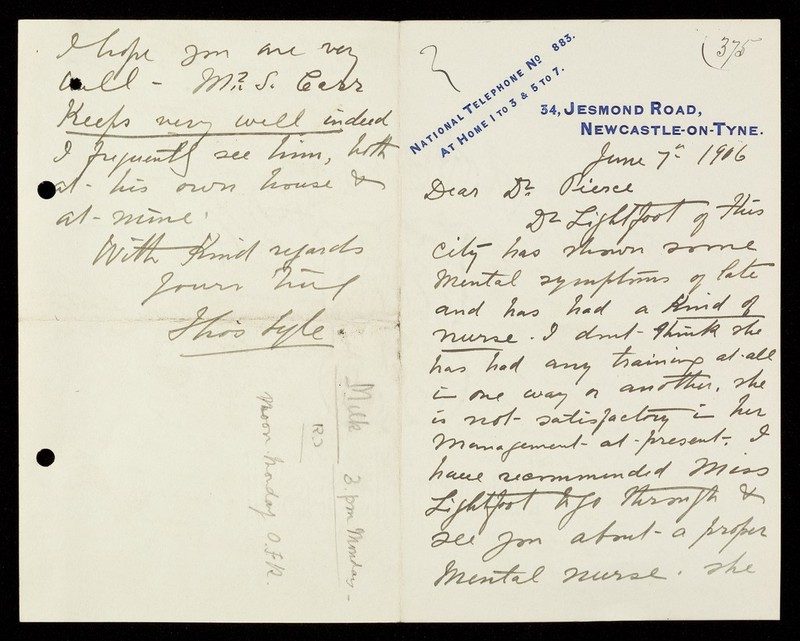 (375
NATIONAL TELEPHONE No 883.
AT HOME 1 TO 3 & 5 TO 7.
34, JESMOND ROAD,
NEWCASTLE-ON-TYNE.
June 7th 1906
Dear Dr. Pierce
Dr Lightfoot of this
city has shown some
mental symptoms of late
and has had a kind of
nurse. I don't think she
has had any training at all
in one way or another, she
is not satisfactory in her
management at present. I
have recommended Miss
Lightfoot to go through &
see you about a proper
mental nurse. She
I hope you are very
well - Mr. S. Carr
Keeps very well indeed
I frequently see him, both
at his own house &
at mine.
With Kind regards
yours truly
Thos Lyle
Milk 3. pm Monday -
noon Monday